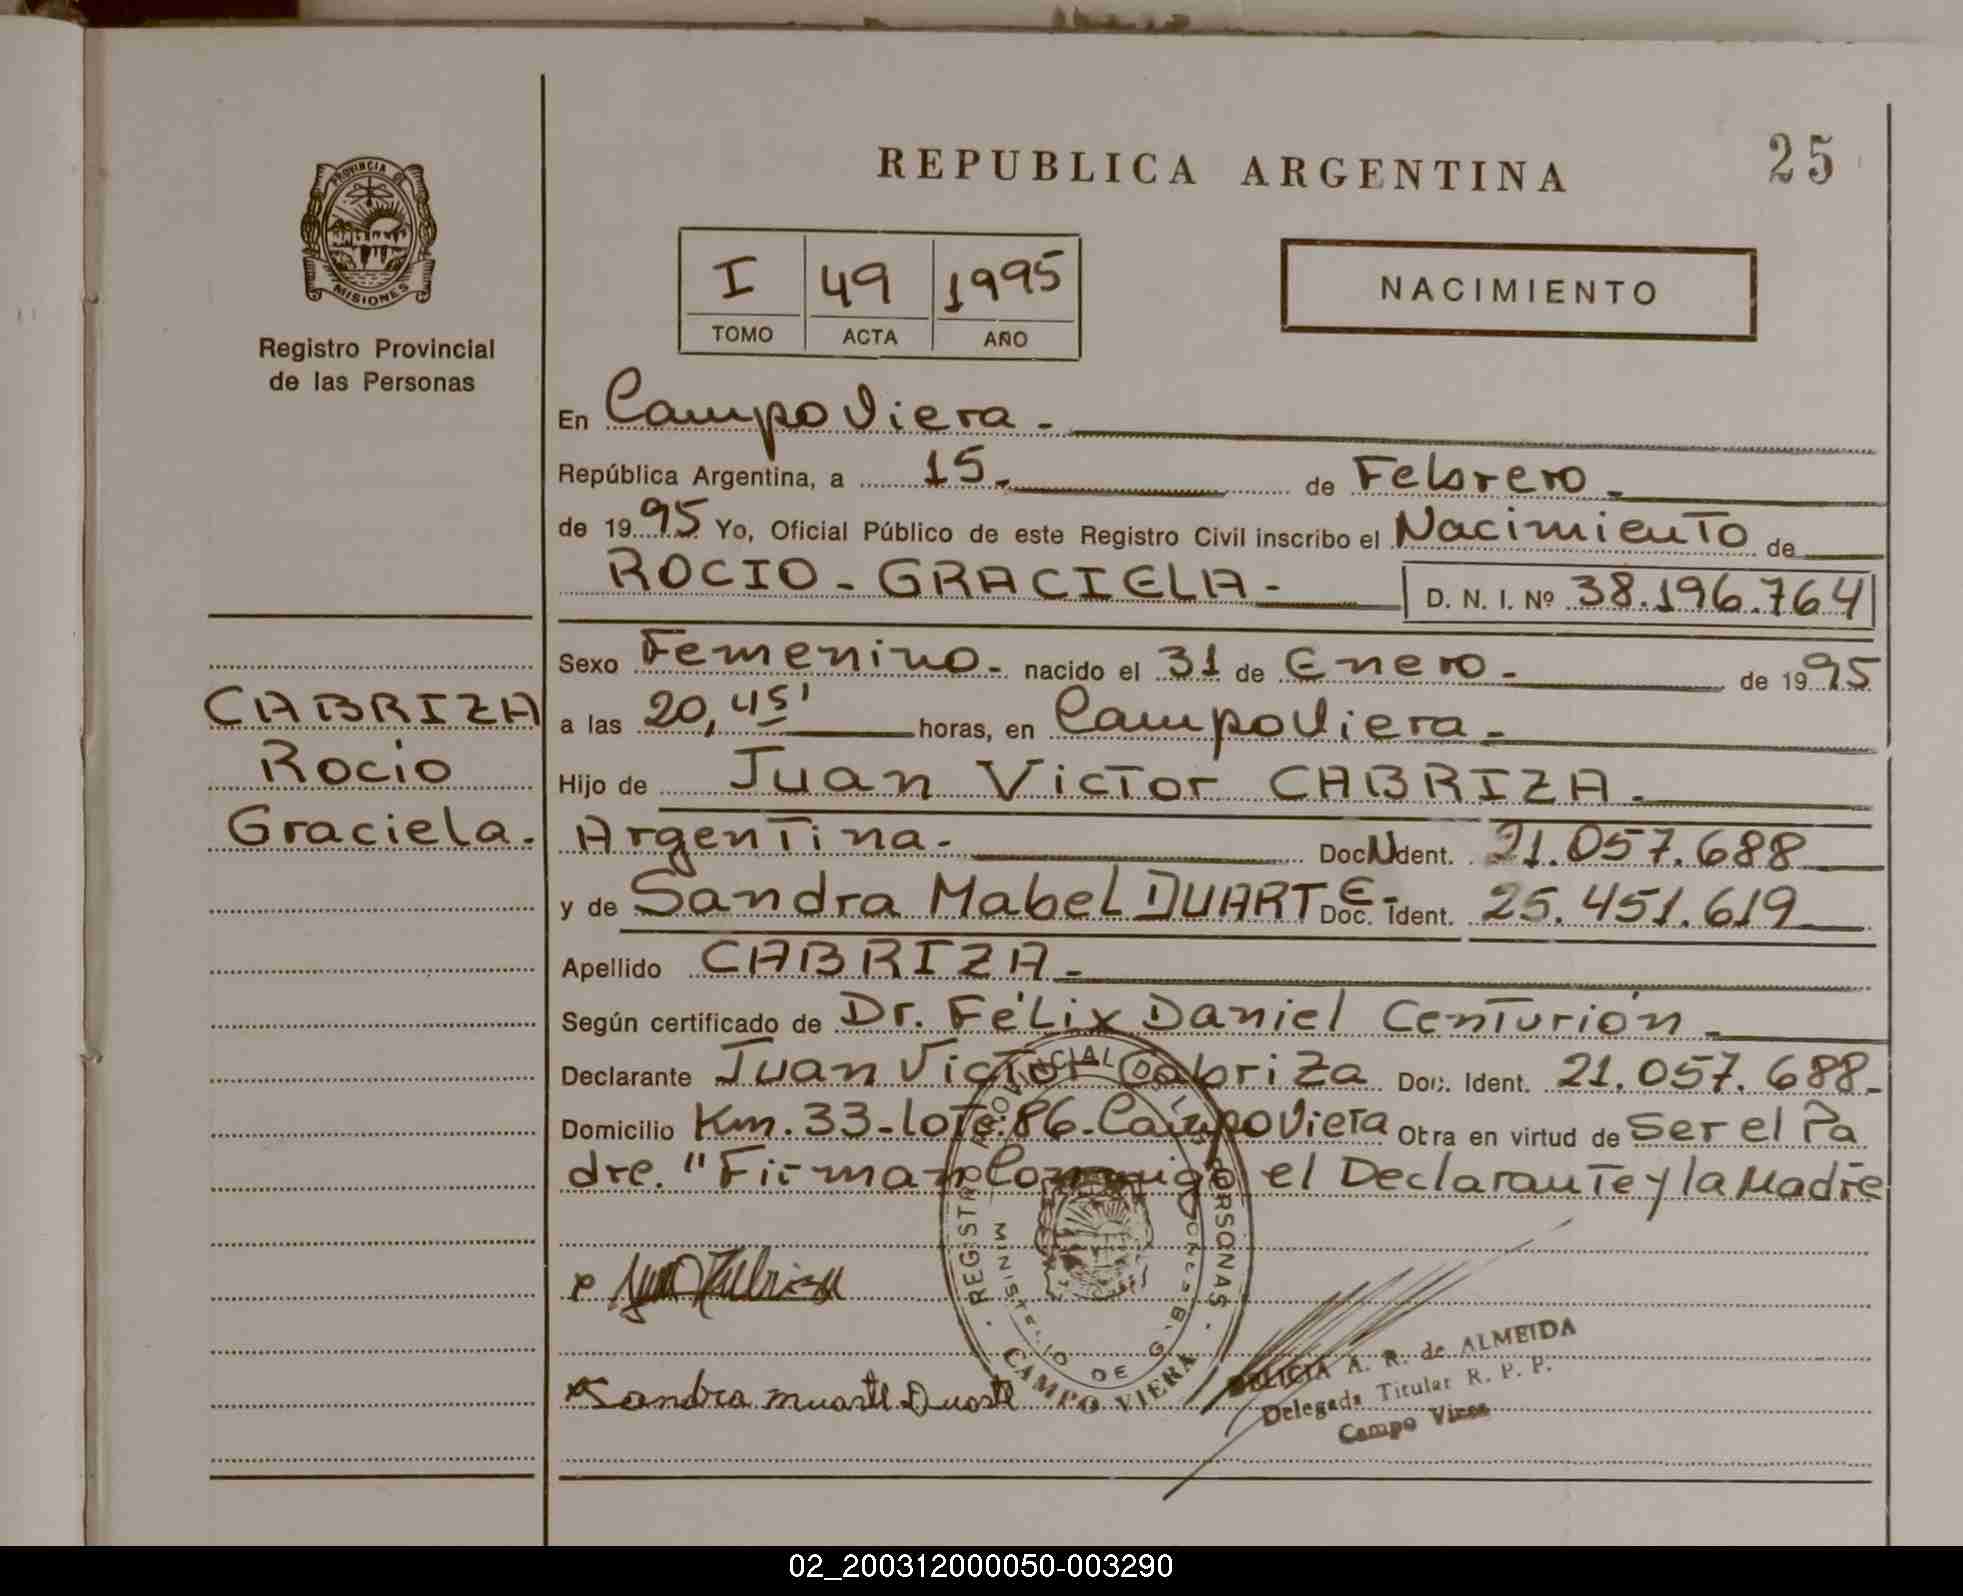 25
REPUBLICA ARGENTINA
PROVINCIA DE
MISIONES
Registro Provincial
de las Personas
I 49 1995
TOMO ACTA AÑO
NACIMIENTO
En Campo Viera.-
República Argentina, a 15.- de Febrero.-
de 1995 Yo, Oficial Público de este Registro Civil inscribo el Nacimiento de
ROCIO - GRACIELA - D. N. I. Nº 38.196.764
Sexo Femenino.- nacido el 31 de Enero.- de 1995
CABRIZA
Rocio
Graciela.
a las 20,45' horas, en Campo Viera.-
Hijo de Juan Victor CABRIZA.-
Argentina.- Doc. Ident. 21.057.688
y de Sandra Mabel DUARTE- Doc. Ident. 25.451.619
Apellido CABRIZA.-
Según certificado de Dr. Félix Daniel Centurión.-
Declarante Juan Victor Cabriza Doc. Ident. 21.057.688-
Domicilio Km. 33-lote:86-Campo Viera Obra en virtud de Ser el Pa
dre. "Firman Conmigo el Declarante y la Madre
REGISTRO PROVINCIAL DE LAS PERSONAS
MINISTERIO DE GOB.
CAMPO VIERA
Sandra Duarte
DELICIA A. R. de ALMEIDA
Delegada Titular R. P. P.
Campo Viera
02_200312000050-003290